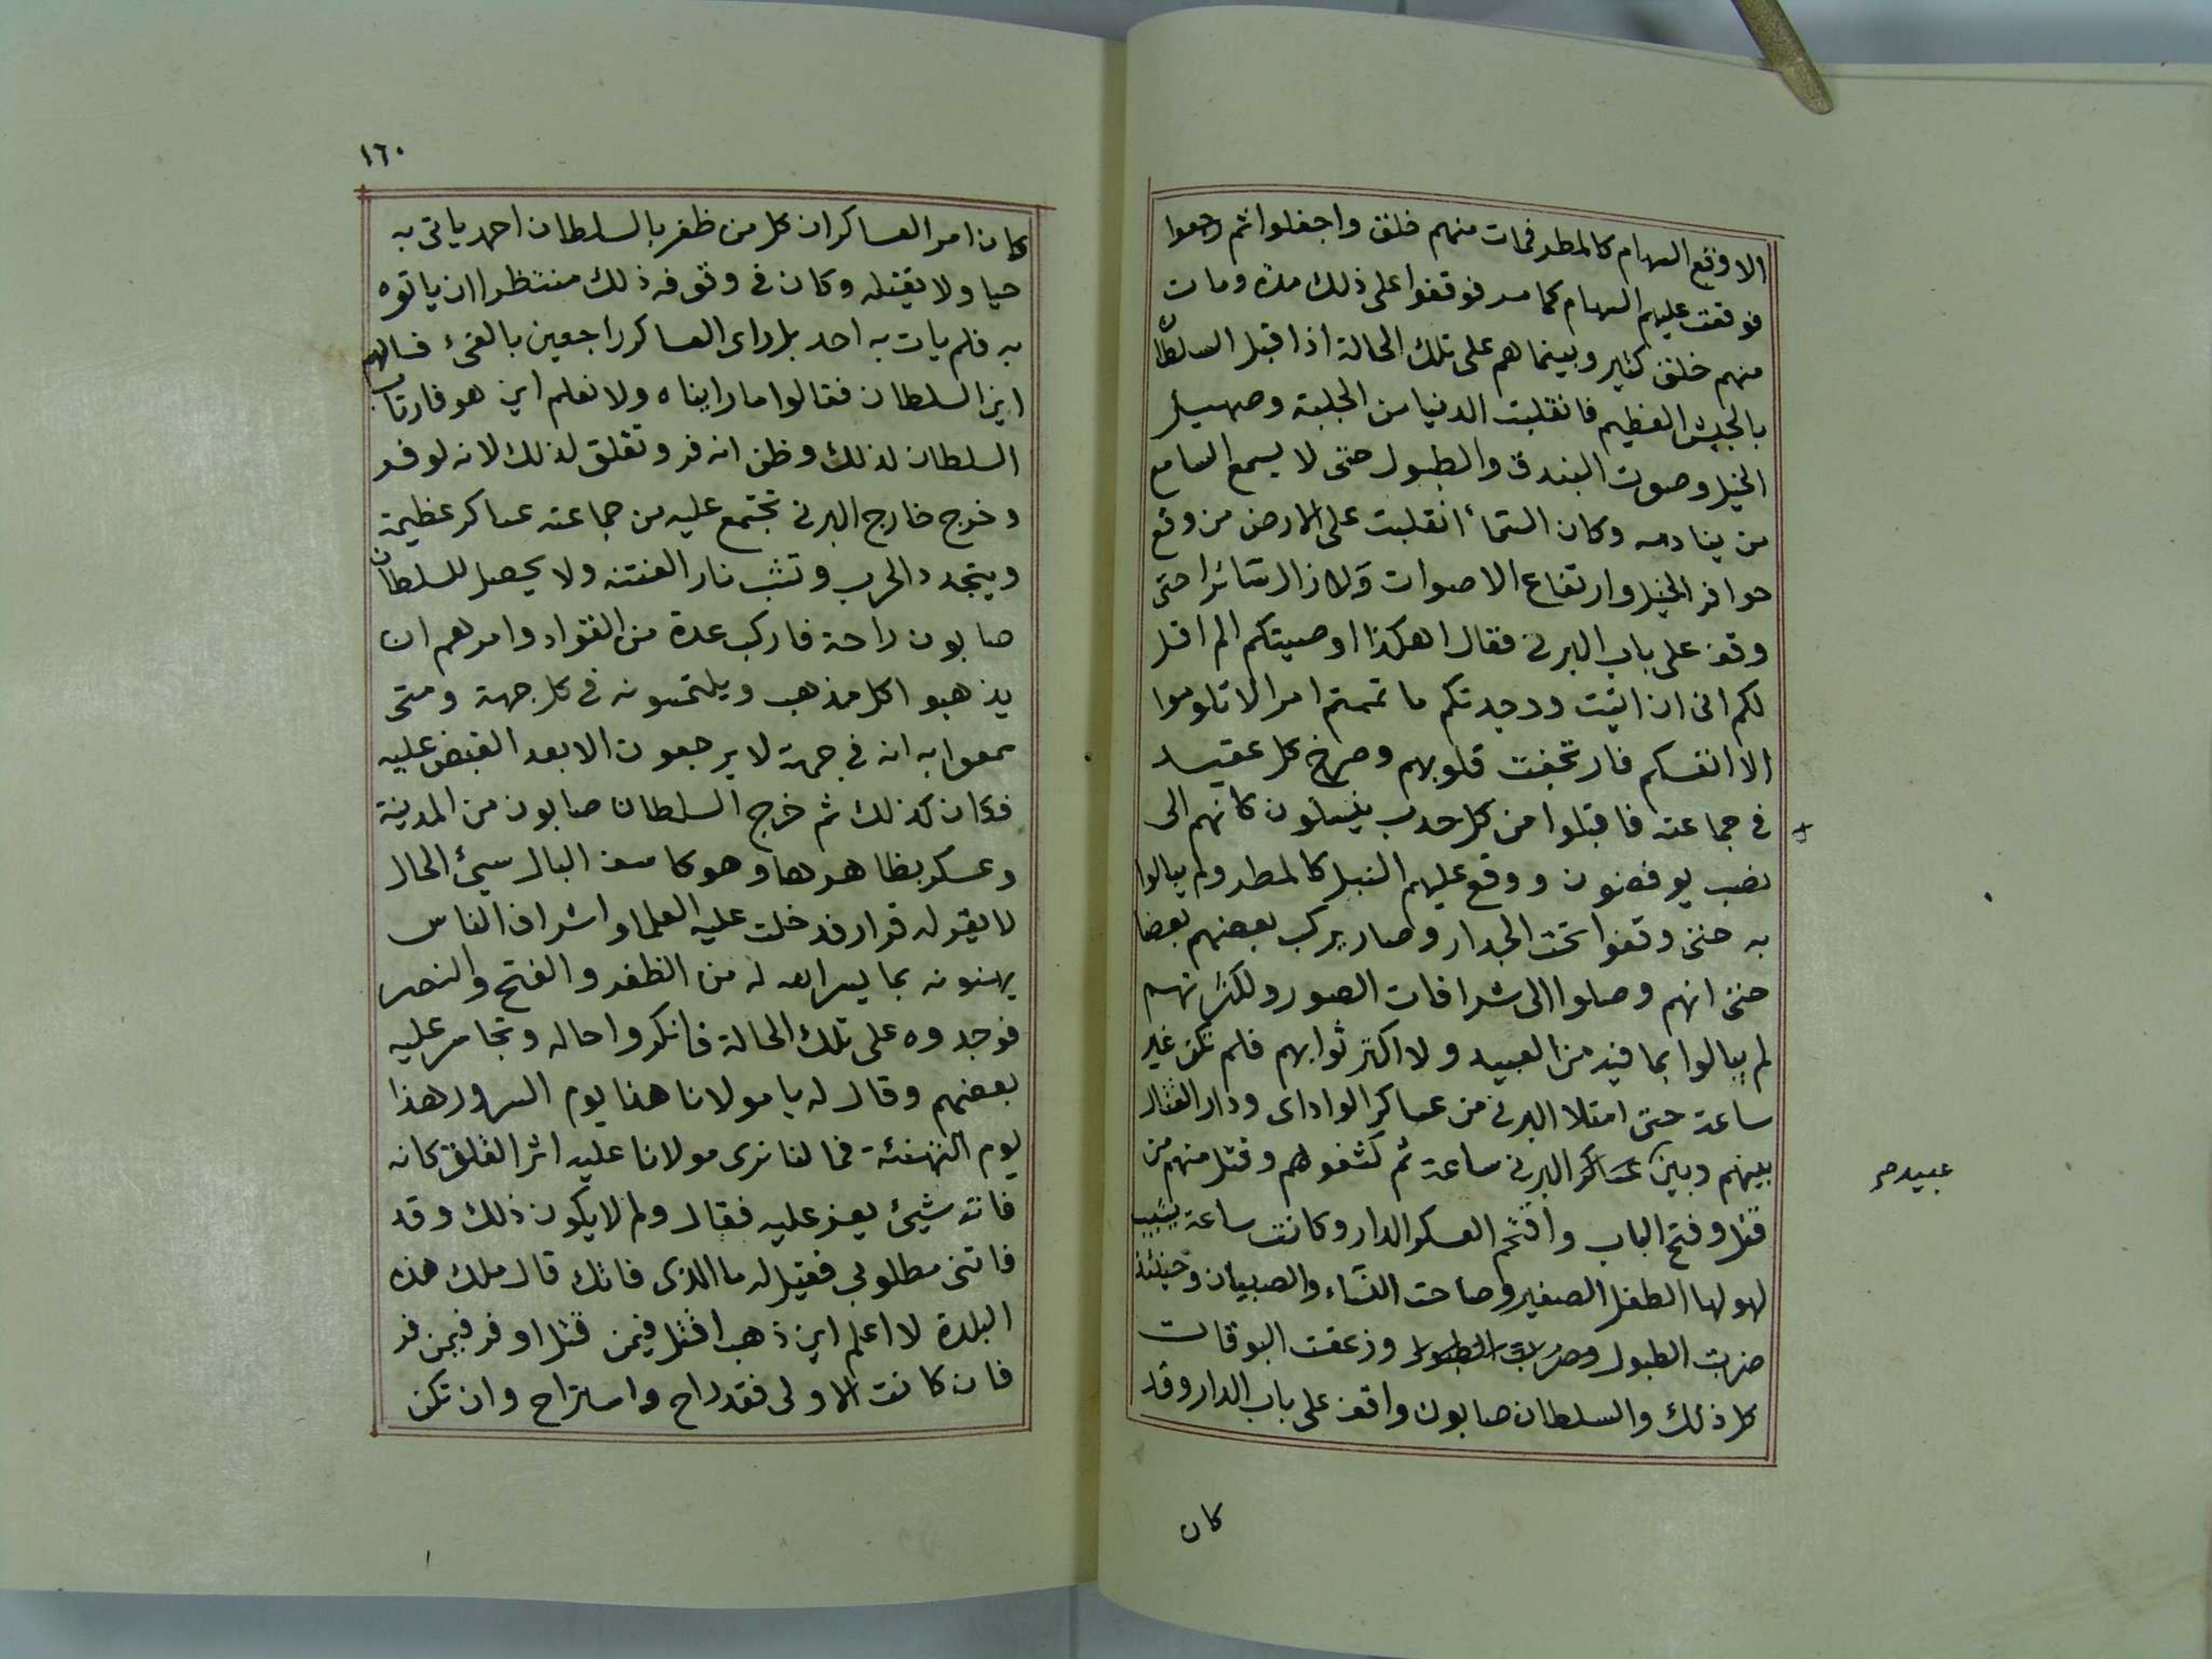 الا وقع السهام كالمطر فمات منهم خلق واجفلوا ثم رجعوا
فوقعت عليهم السهام كما مر فوقفوا على ذلك مدة ومات
منهم خلق كثير وبينما هم على تلك الحالة اذ اقبل السلطان
بالجيش العظيم فانقلبت الدنيا من الجلبة وصهيل
الخيل وصوت البندق والطبول حتى لا يسمع السامع
من يناديه وكان السمآء انقلبت على الارض من وقع
حوافر الخيل وارتفاع الاصوات ولازال سائرا حتى
وقف على باب البرنى فقال اهكذا اوصيتكم الم اقل
لكم انى ان اتيت ووجدتكم ما تممتم امرا لا تلوموا
الا انفسكم فارتجفت قلوبهم وصرخ كل عقيد
فى جماعته فاقبلوا من كل حدب ينسلون كانهم الى
نصب يوفضون ووقع عليهم النبل كالمطر ولم يبالوا
به حتى وقفوا تحت الجدار وصار يركب بعضهم بعضا
حتى انهم وصلوا الى شرافات الصور ولكثرتهم
لم يبالوا بما فيه من العبيد ولا اكترثوا بهم فلم تكن غير
ساعة حتى امتلا البرنى من عساكر الواداى ودار القتال
بينهم وبين عساكر البرنى ساعة ثم كشفوهم وقتل منهم من
عبيد
قتل وفتح الباب واقتحم العسكر الدار وكانت ساعة يشيب
لهولها الطفل الصغير وصاحت النسآء والصبيان وحينئذ
ضربت الطبول وضربت الطبول وزعقت البوقات
كل ذلك والسلطان صابون واقف على باب الدار وقد
كان
١٦٠
كان امر العساكر ان كل من ظفر بالسلطان احمد ياتى به
حيا ولا يقتله وكان فى وقوفه ذلك منتظرا ان ياتوه
به فلم يات به احد بل راى العساكر راجعين بالفئ فسالهم
اين السلطان فقالوا ما رايناه ولا نعلم اين هو فارتاب
السلطان لذلك وظن انه فر وتقلق لذلك لانه لو فر
وخرج خارج البرنى تجتمع عليه من جماعته عساكر عظيمة
ويتجدد الحرب وتشب نار الفتنه ولا يحصل للسلطان
صابون راحة فاركب عدة من القواد وامرهم ان
يذهبوا كل مذهب ويلتمسونه فى كل جهة ومتى
سمعوا به انه فى جهة لا يرجعون الا بعد القبض عليه
فكان كذلك ثم خرج السلطان صابون من المدينة
وعسكر بظاهرها وهو كاسف البال سيئ الحال
لا يقر له قرار فدخلت عليه العلما واشراف الناس
يهنونه بما يسر الله له من الظفر والفتح والنصر
فوجدوه على تلك الحالة فانكروا حاله وتجاسر عليه
بعضهم وقال له يا مولانا هذا يوم السرور هذا
يوم التهنئة فما لنا نرى مولانا عليه اثر القلق كانه
فاته شيئ يعز عليه فقال ولم لا يكون ذلك وقد
فاتنى مطلوبى فقيل له ما الذى فاتك قال ملك هذه
البلدة لا اعلم اين ذهب اقتل فيمن قتل او فر فيمن فر
فان كانت الاولى فقد راح واستراح وان تكن